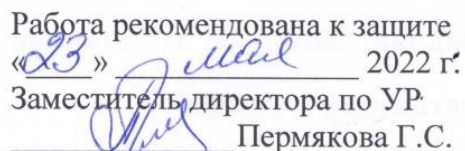 Работа рекомендована к защите
«23» мая 2022 г.
Заместитель директора по УР
Пермякова Г.С.